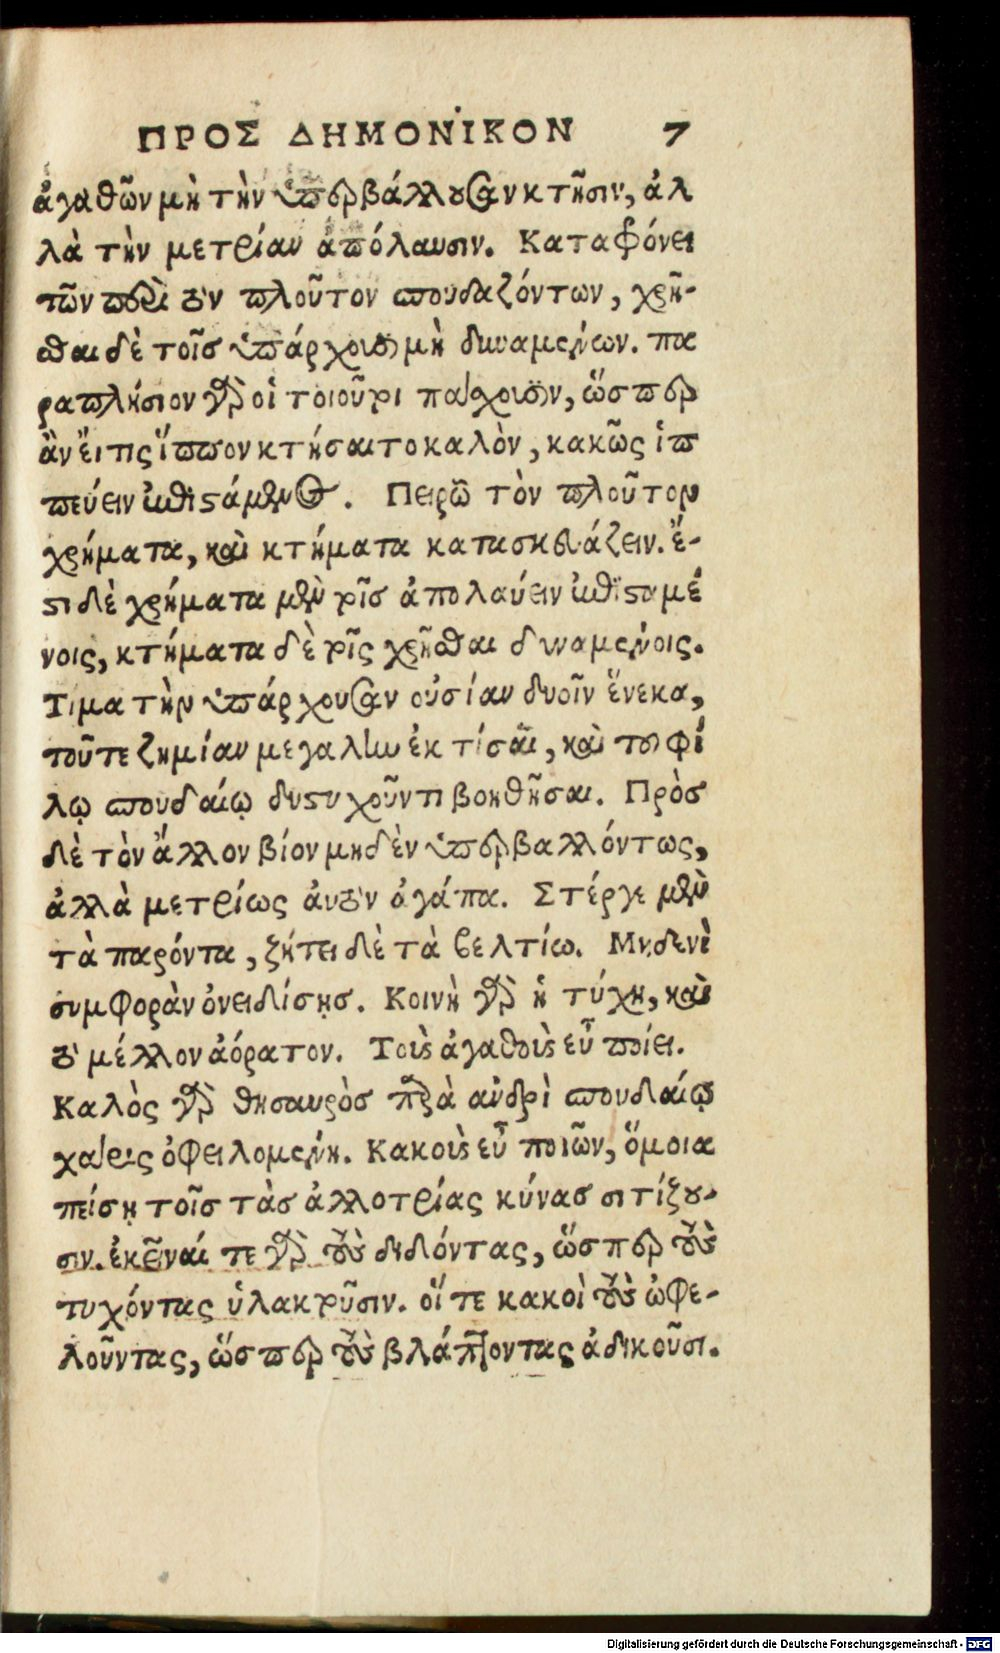 ΠΡΟΣ ΔΗΜΟΝΙΚΟΝ 7
ἀγαθῶν μὴ τὴν ὑπερβάλλουσαν κτῆσιν, ἀλ
λὰ τὴν μετρίαν ἀπόλαυσιν. Καταφρόνει
τῶν περὶ τὸν πλοῦτον σπουδαζόντων, χρῆ-
σθαι δὲ τοῖς ὑπάρχουσι μὴ δυναμένων. πα
ραπλήσιον γὰρ οἱ τοιοῦτοι πάσχουσιν, ὥσπερ
ἂν εἴ τις ἵππον κτήσαιτο καλὸν, κακῶς ἱπ
πεύειν ἐπιστάμενος. Πειρῶ τὸν πλοῦτον
χρήματα, καὶ κτήματα κατασκευάζειν. ἔ-
στι δὲ χρήματα μὲν τοῖς ἀπολαύειν ἐπισταμέ
νοις, κτήματα δὲ τοῖς χρῆσθαι δυναμένοις.
Τίμα τὴν ὑπάρχουσαν οὐσίαν δυοῖν ἕνεκα,
τοῦ τε ζημίαν μεγάλην ἐκτίσαι, καὶ τοῦ φί
λῳ σπουδαίῳ δυστυχοῦντι βοηθῆσαι. Πρὸς
δὲ τὸν ἄλλον βίον μηδὲν ὑπερβαλλόντως,
ἀλλὰ μετρίως αὐτὸν ἀγάπα. Στέργε μὲν
τὰ παρόντα, ζήτει δὲ τὰ βελτίω. Μηδενὶ
συμφορὰν ὀνειδίσῃς. Κοινὴ γὰρ ἡ τύχη, καὶ
τὸ μέλλον ἀόρατον. Τοὺς ἀγαθοὺς εὖ ποίει.
Καλὸς γὰρ θησαυρὸς παρὰ ἀνδρὶ σπουδαίῳ
χάρις ὀφειλομένη. Κακοὺς εὖ ποιῶν, ὅμοια
πείσῃ τοῖς τὰς ἀλλοτρίας κύνας σιτίζου-
σιν. ἐκεῖναί τε γὰρ τοὺς διδόντας, ὥσπερ τοὺς
τυχόντας ὑλακτοῦσιν. οἵ τε κακοὶ τοὺς ὠφε-
λοῦντας, ὥσπερ τοὺς βλάπτοντας ἀδικοῦσι.
Digitalisierung gefördert durch die Deutsche Forschungsgemeinschaft - DFG